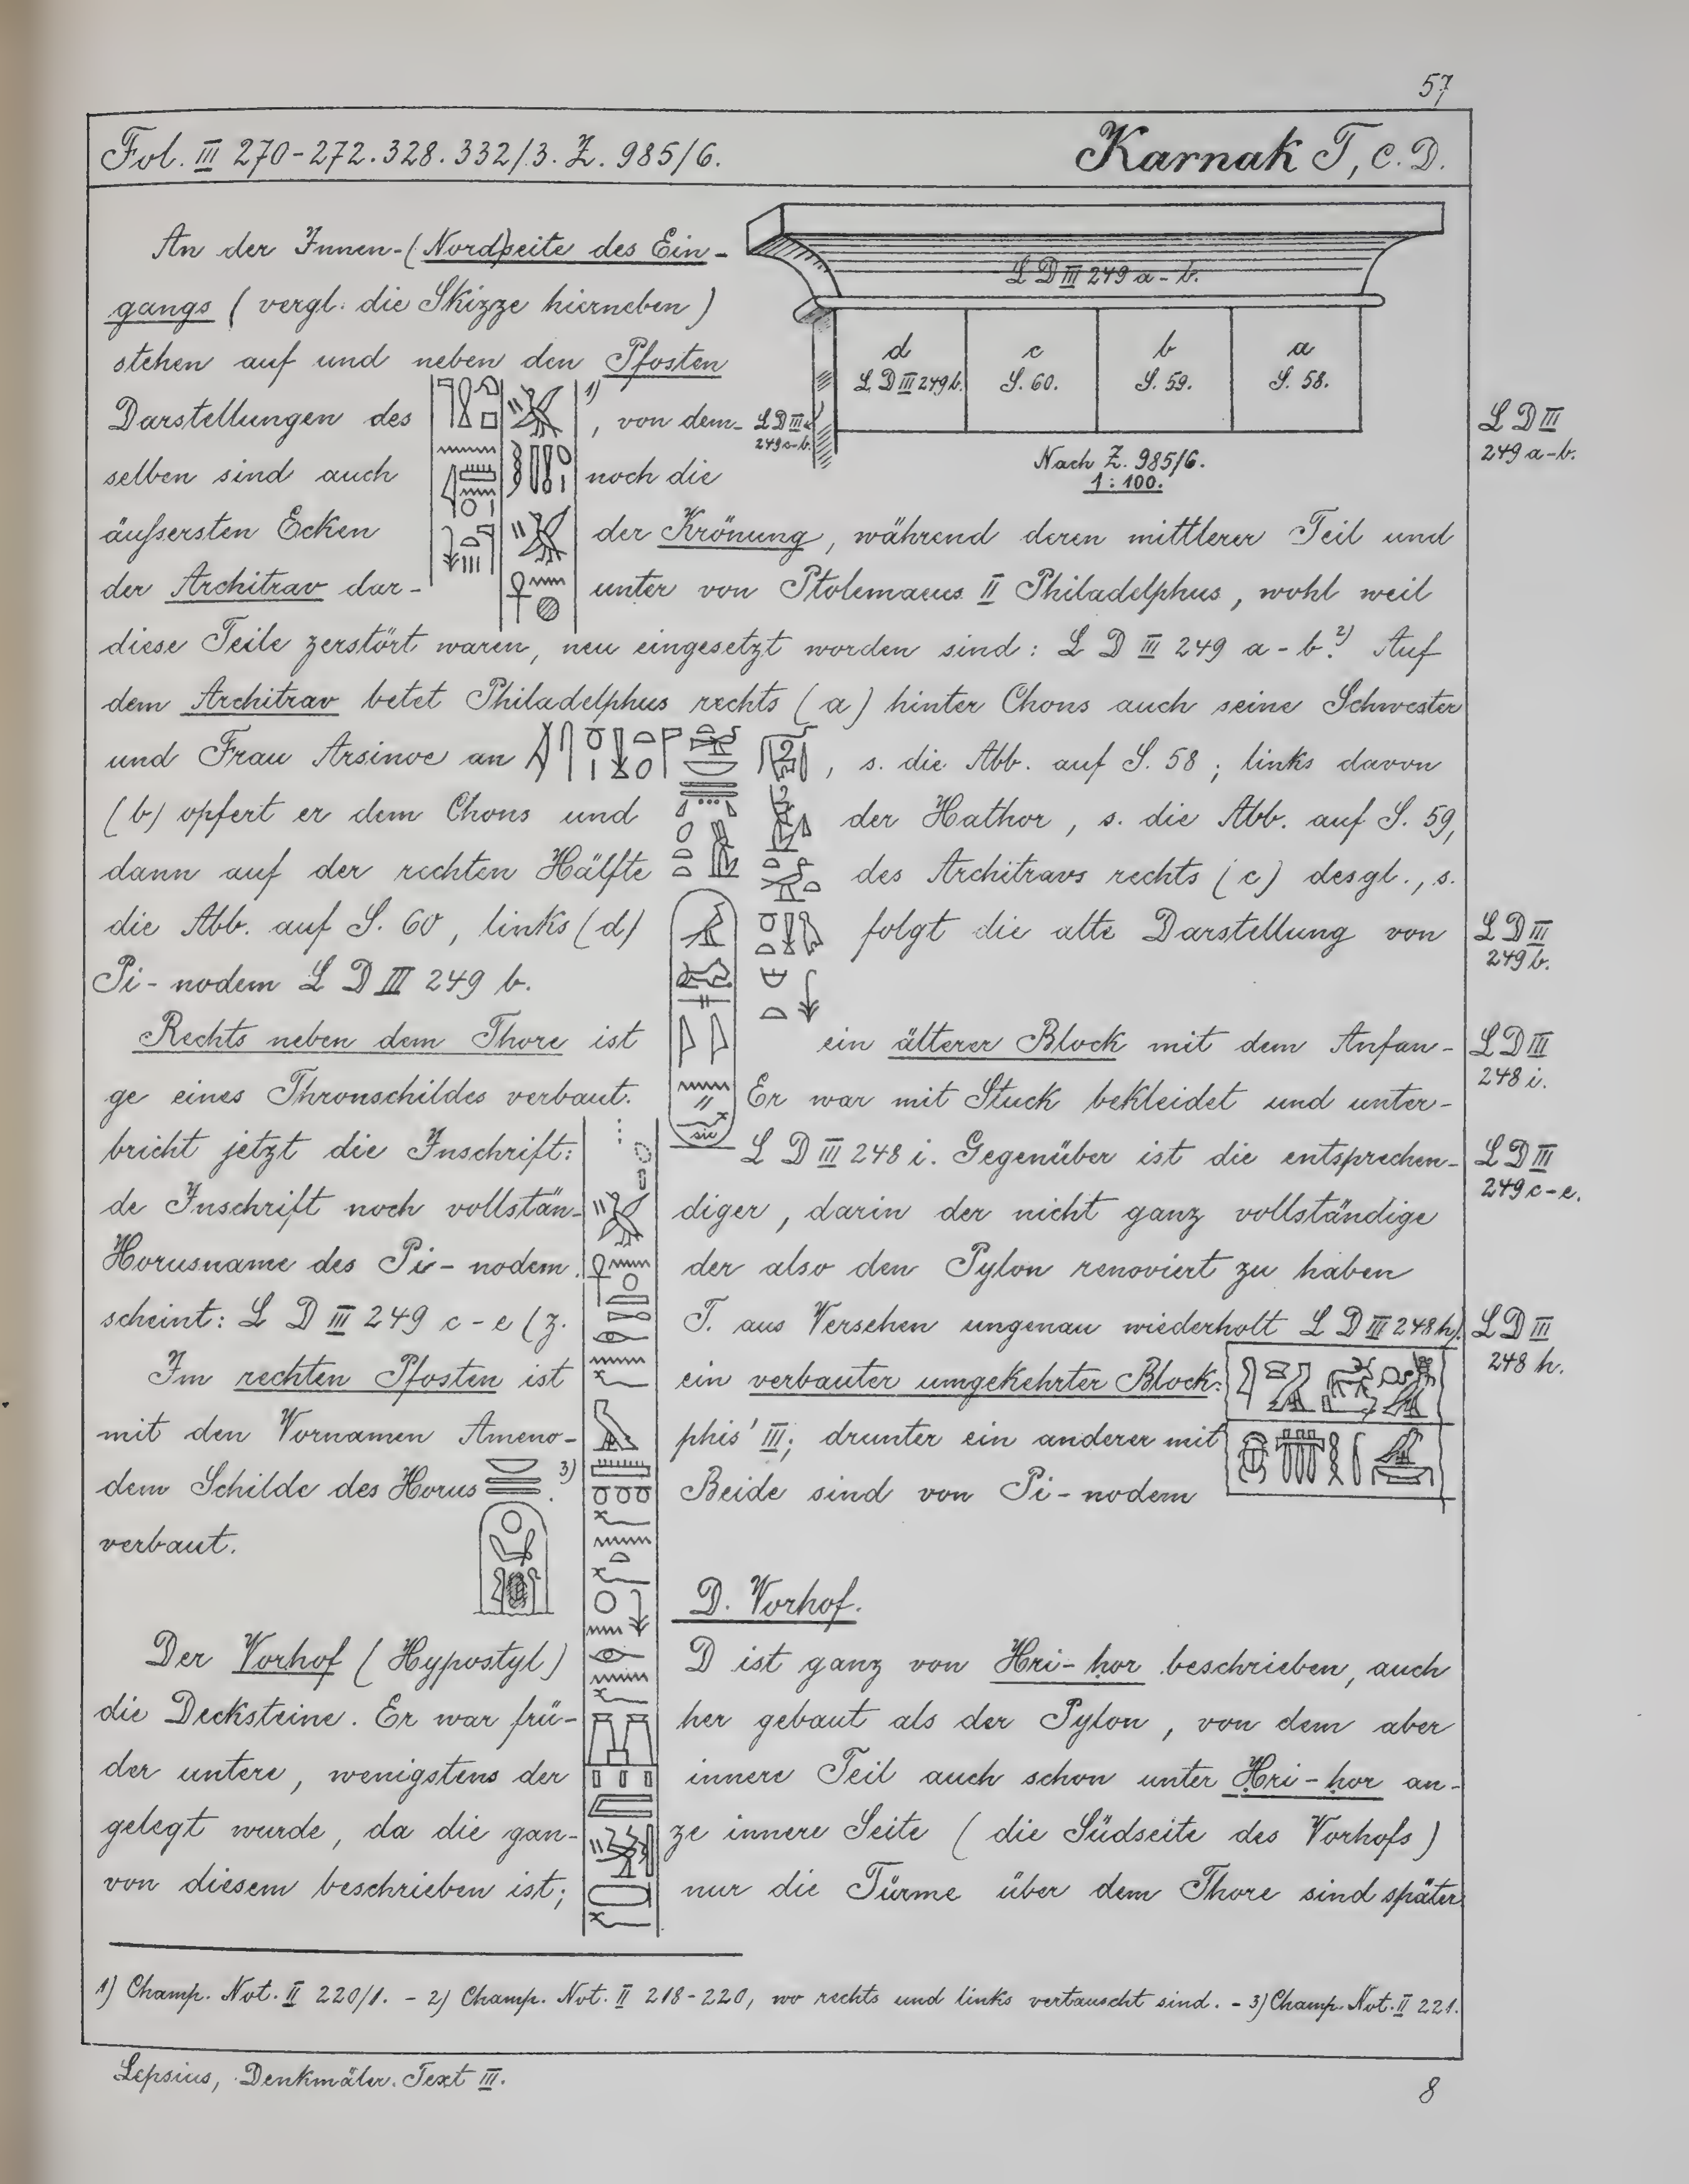 57
Fol. III 270-272. 328. 332/3. Z. 985/6. Karnak T, c. D.
An der Innen-(Nord)seite des Ein-
gangs (vergl. die Skizze hierneben)
stehen auf und neben den Pfosten
Darstellungen des 1), von dem-
selben sind auch noch die
äußersten Ecken der Krönung, während deren mittlerer Teil und
der Architrav dar- unter von Ptolemaeus II Philadelphus, wohl weil
diese Teile zerstört waren, neu eingesetzt worden sind: L D III 249 a-b.2) Auf
dem Architrav betet Philadelphus rechts (a) hinter Chons auch seine Schwester
und Frau Arsinoe an , s. die Abb. auf S. 58; links davon
(b) opfert er dem Chons und der Hathor, s. die Abb. auf S. 59,
dann auf der rechten Hälfte des Architravs rechts (c) desgl., s.
die Abb. auf S. 60, links (d) folgt die alte Darstellung von
Pi-nodem L D III 249 b.
Rechts neben dem Thore ist ein älterer Block mit dem Anfan-
ge eines Thronschildes verbaut. Er war mit Stuck bekleidet und unter-
bricht jetzt die Inschrift: L D III 248 i. Gegenüber ist die entsprechen-
de Inschrift noch vollstän- diger, darin der nicht ganz vollständige
Horusname des Pi-nodem. der also den Pylon renoviert zu haben
scheint: L D III 249 c-e (z. T. aus Versehen ungenau wiederholt L D III 248 h).
Im rechten Pfosten ist ein verbauter umgekehrter Block:
mit den Vornamen Ameno- phis' III; drunter ein anderer mit
dem Schilde des Horus .3) Beide sind von Pi-nodem
verbaut.
sic
D. Vorhof.
Der Vorhof (Hypostyl) D ist ganz von Hri-hor beschrieben, auch
die Decksteine. Er war frü- her gebaut als der Pylon, von dem aber
der untere, wenigstens der innere Teil auch schon unter Hri-hor an-
gelegt wurde, da die gan- ze innere Seite (die Südseite des Vorhofs)
von diesem beschrieben ist; nur die Türme über dem Thore sind später
L D III 249 a-b.
d
L. D III 249 b.
c
S. 60.
b
S. 59.
a
S. 58.
L D III
249 a-b.
Nach Z. 985/6.
1:100.
L D III
249 a-b.
L D III
249 b.
L D III
248 i.
L D III
249 c-e.
L D III
248 h.
1) Champ. Not. II 220/1. - 2) Champ. Not. II 218-220, wo rechts und links vertauscht sind. - 3) Champ. Not. II 221.
Lepsius, Denkmäler. Text III.
8